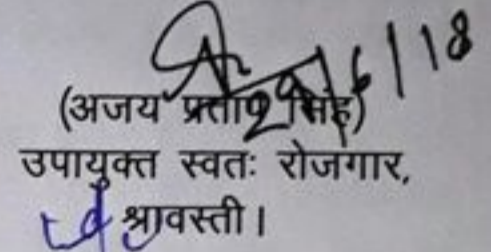 29/6/18
(अजय प्रताप सिंह)
उपायुक्त स्वतः रोजगार,
श्रावस्ती।